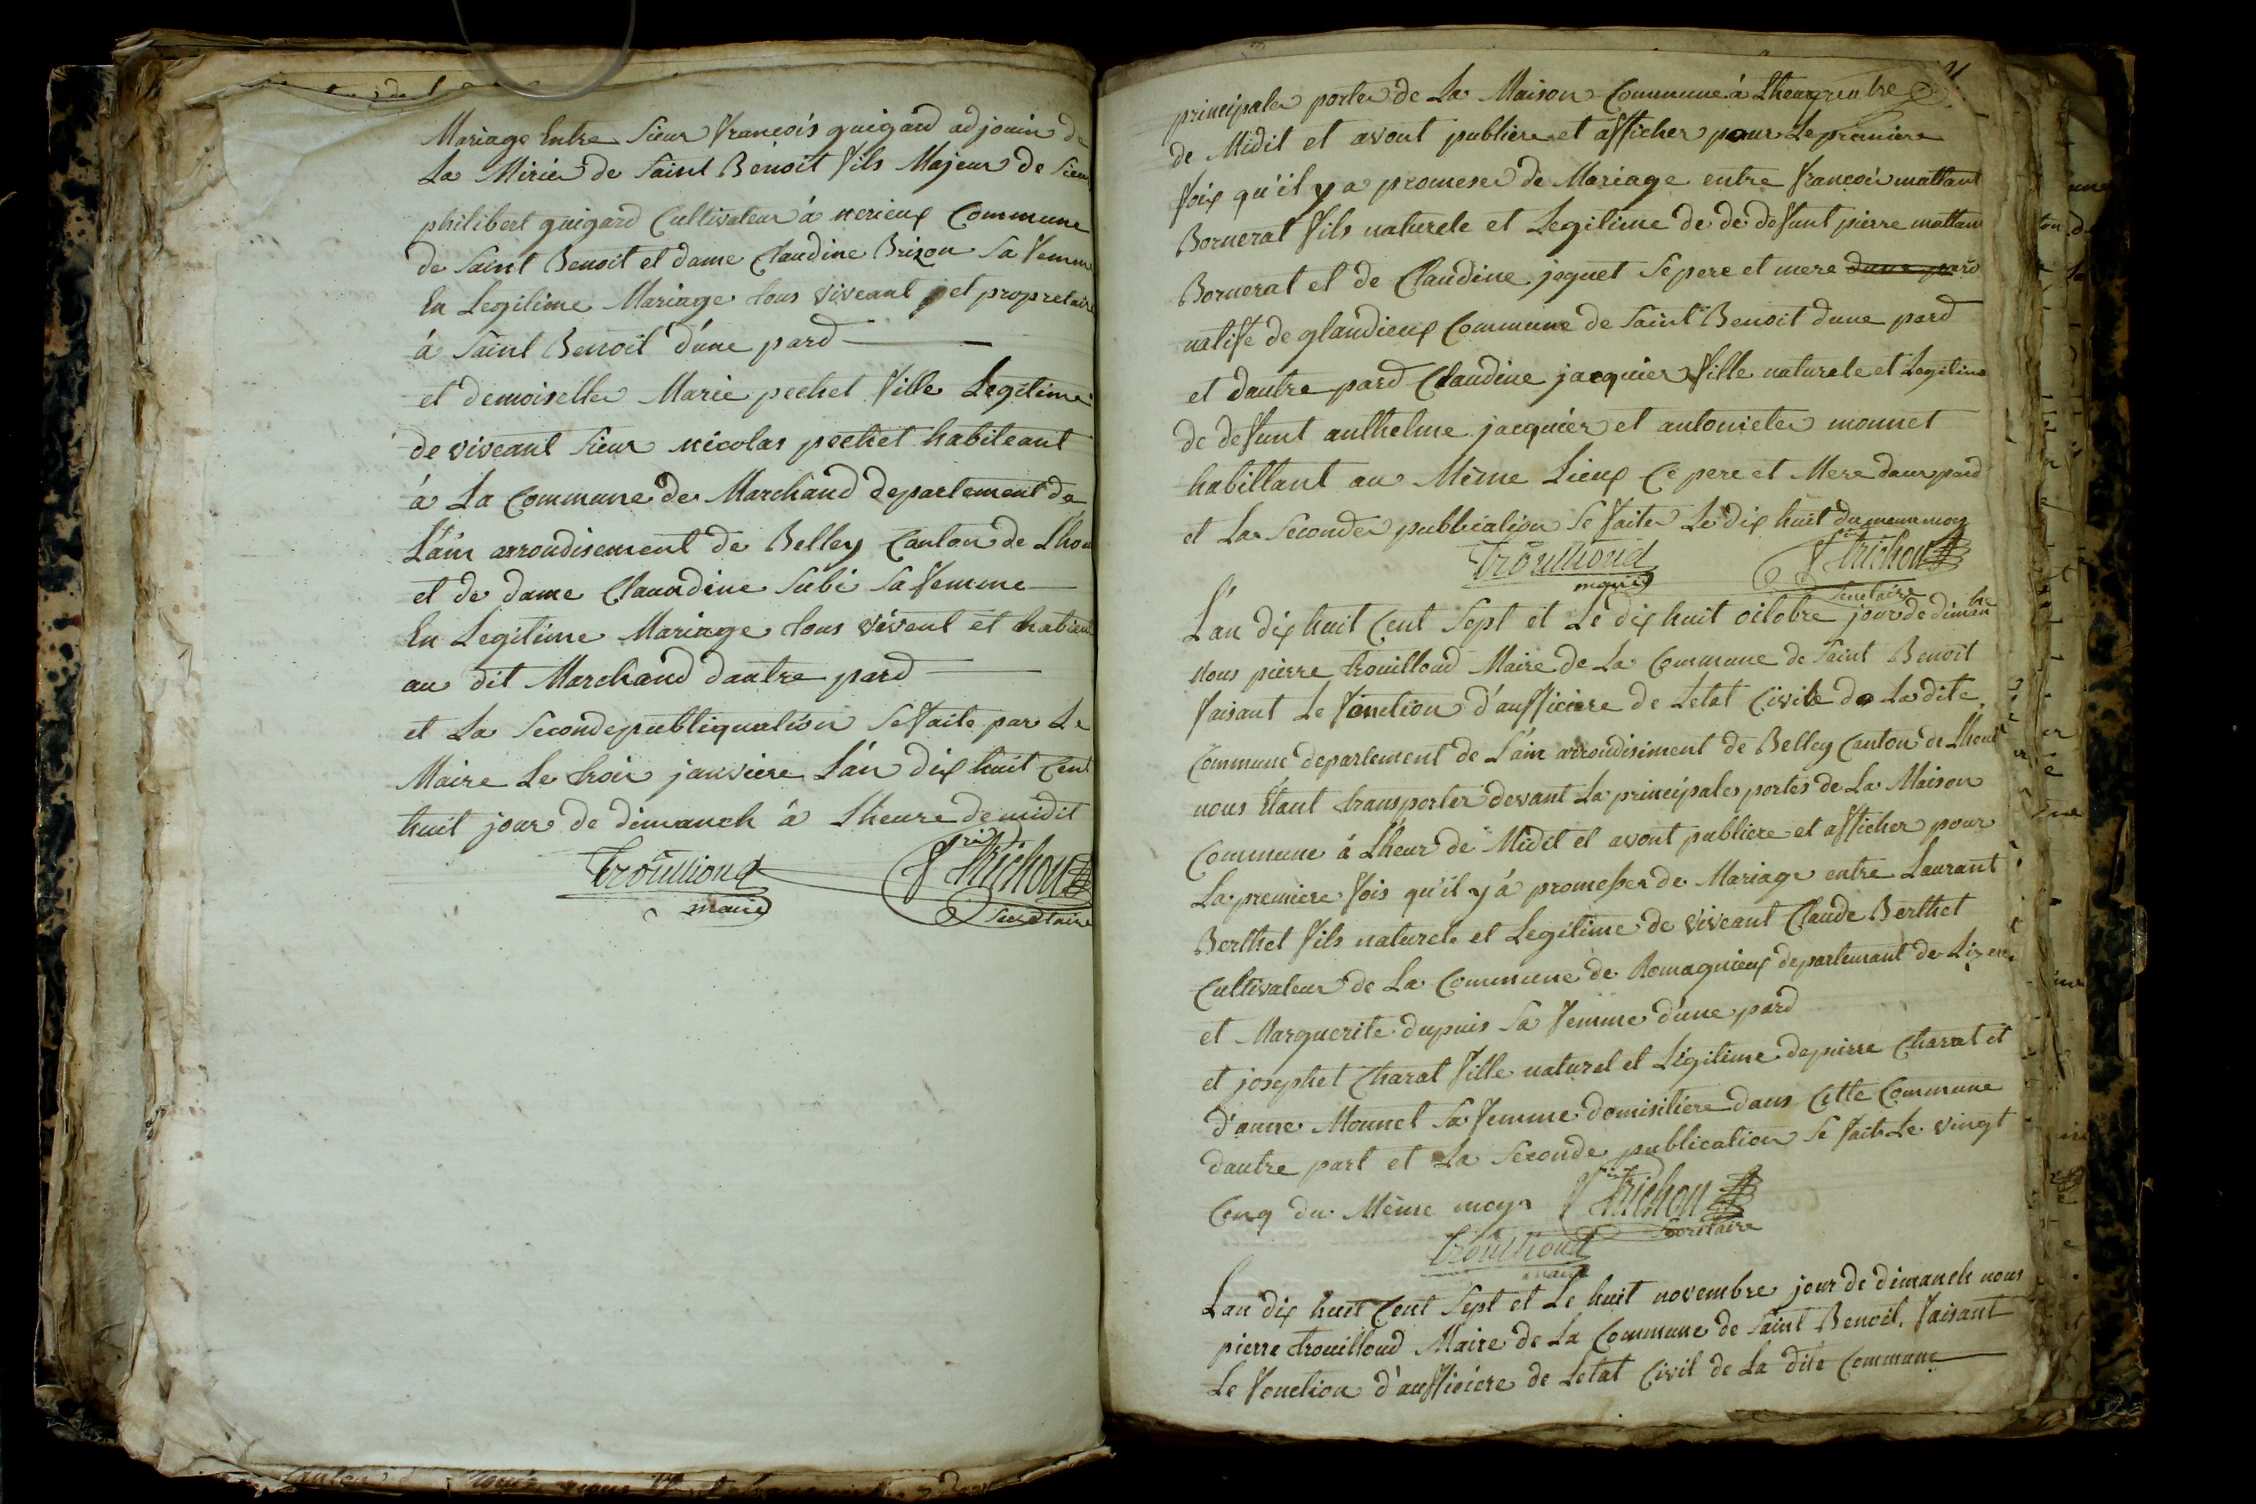 Mariage Entre Sieur françois guigard adjouin de
La Mirie de Saint Benoit fils Majeur de Sieur
philibert guigard Cultivateur á nerieux Commune
de Saint Benoit et dame Claudine Brizon Sa femme
En Legitime Mariage tous viveant et propretaire
á Saint Benoit d'une pard
et demoiselle Marie pechet fille Legitime
de viveant Sieur nicolas pechet habiteant
á La Commune de Marchand departement de
L'ain arroudisement de Belley Canton de Lhou
et de dame Claudine Subi Sa femme
En Legitime Mariage tous vivent et habient
au dit Marchand dautre pard
et La Seconde publiqualion Se faite par Le
Maire Le troir janviere L'an dix huit Cent
huit jour de dimanch á Lheure de midit
Trouilloud
maire
Trichon
Secretaire
principaler porter de La Maison Commune á Lheur
de Midit et avont publiere et afficher pour Le premiere
foix qu'il y a promese de Mariage entre françois mattant
Bornerat fils naturele et Legitime de de defunt pierre mattan
Bornerat et de Claudine joguet Se pere et mere dune pard
natife de glandieux Commune de Saint Benoit dune pard
et dautre pard Claudine jacquier fille naturele et Legitime
de defunt anthelme jacquier et antonieter monnet
habillant au Même Lieux Ce pere et Mere daur pard
et La Seconder publication Se faite Le dix huit du meme moy
Trouilloud
maire
Trichon
Secretaire
L'an dix huit Cent Sept et Le dix huit octobre jour de diman
nous pierre trouilloud Maire de La Commune de Saint Benoit
faisant Le fonction d'aufficiere de Letat Civile de La dite
Commune departement de L'ain arroudisiment de Belley Canton de Lhout
nous Etant transporter devant La principales portes de La Maison
Commune á Lheur de Midit et avont publiere et afficher pour
La premiere fois qu'il y á promesser de Mariage entre Laurant
Berthet fils naturele et Legitime de viveant Claude Berthet
Cultivateur de La Commune de Romagnieux departemant de Lizere
et Marguerite dupuis Sa femme d'une pard
et josephet Charat fille naturel et Légitime de pierre Charrat et
d'anne Monnet Sa femme domisiliere dans Cette Commune
dautre part et La Seconde publication Se fait Le vingt
Cenq du Même moys
Trichon
Secretaire
Trouilloud
maire
Lan dix huit Cent Sept et Le huit novembre jour de dimanch nous
pierre trouilloud Maire de La Commune de Saint Benoit, faisant
Le fonction d'aufficiere de Letat Civil de La dite Commune